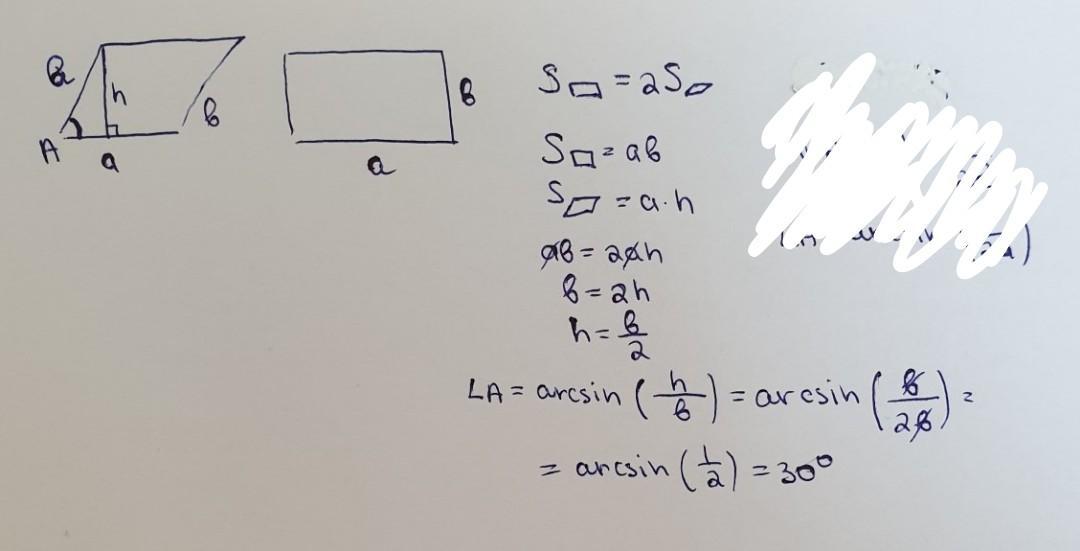 в h в
A a
a в
S▭ = 2S▱
S▭ = aв
S▱ = a·h
aв = 2ah
в = 2h
h = в/2
∠A = arcsin (h/в) = arcsin (в/2в) =
= arcsin (1/2) = 30°